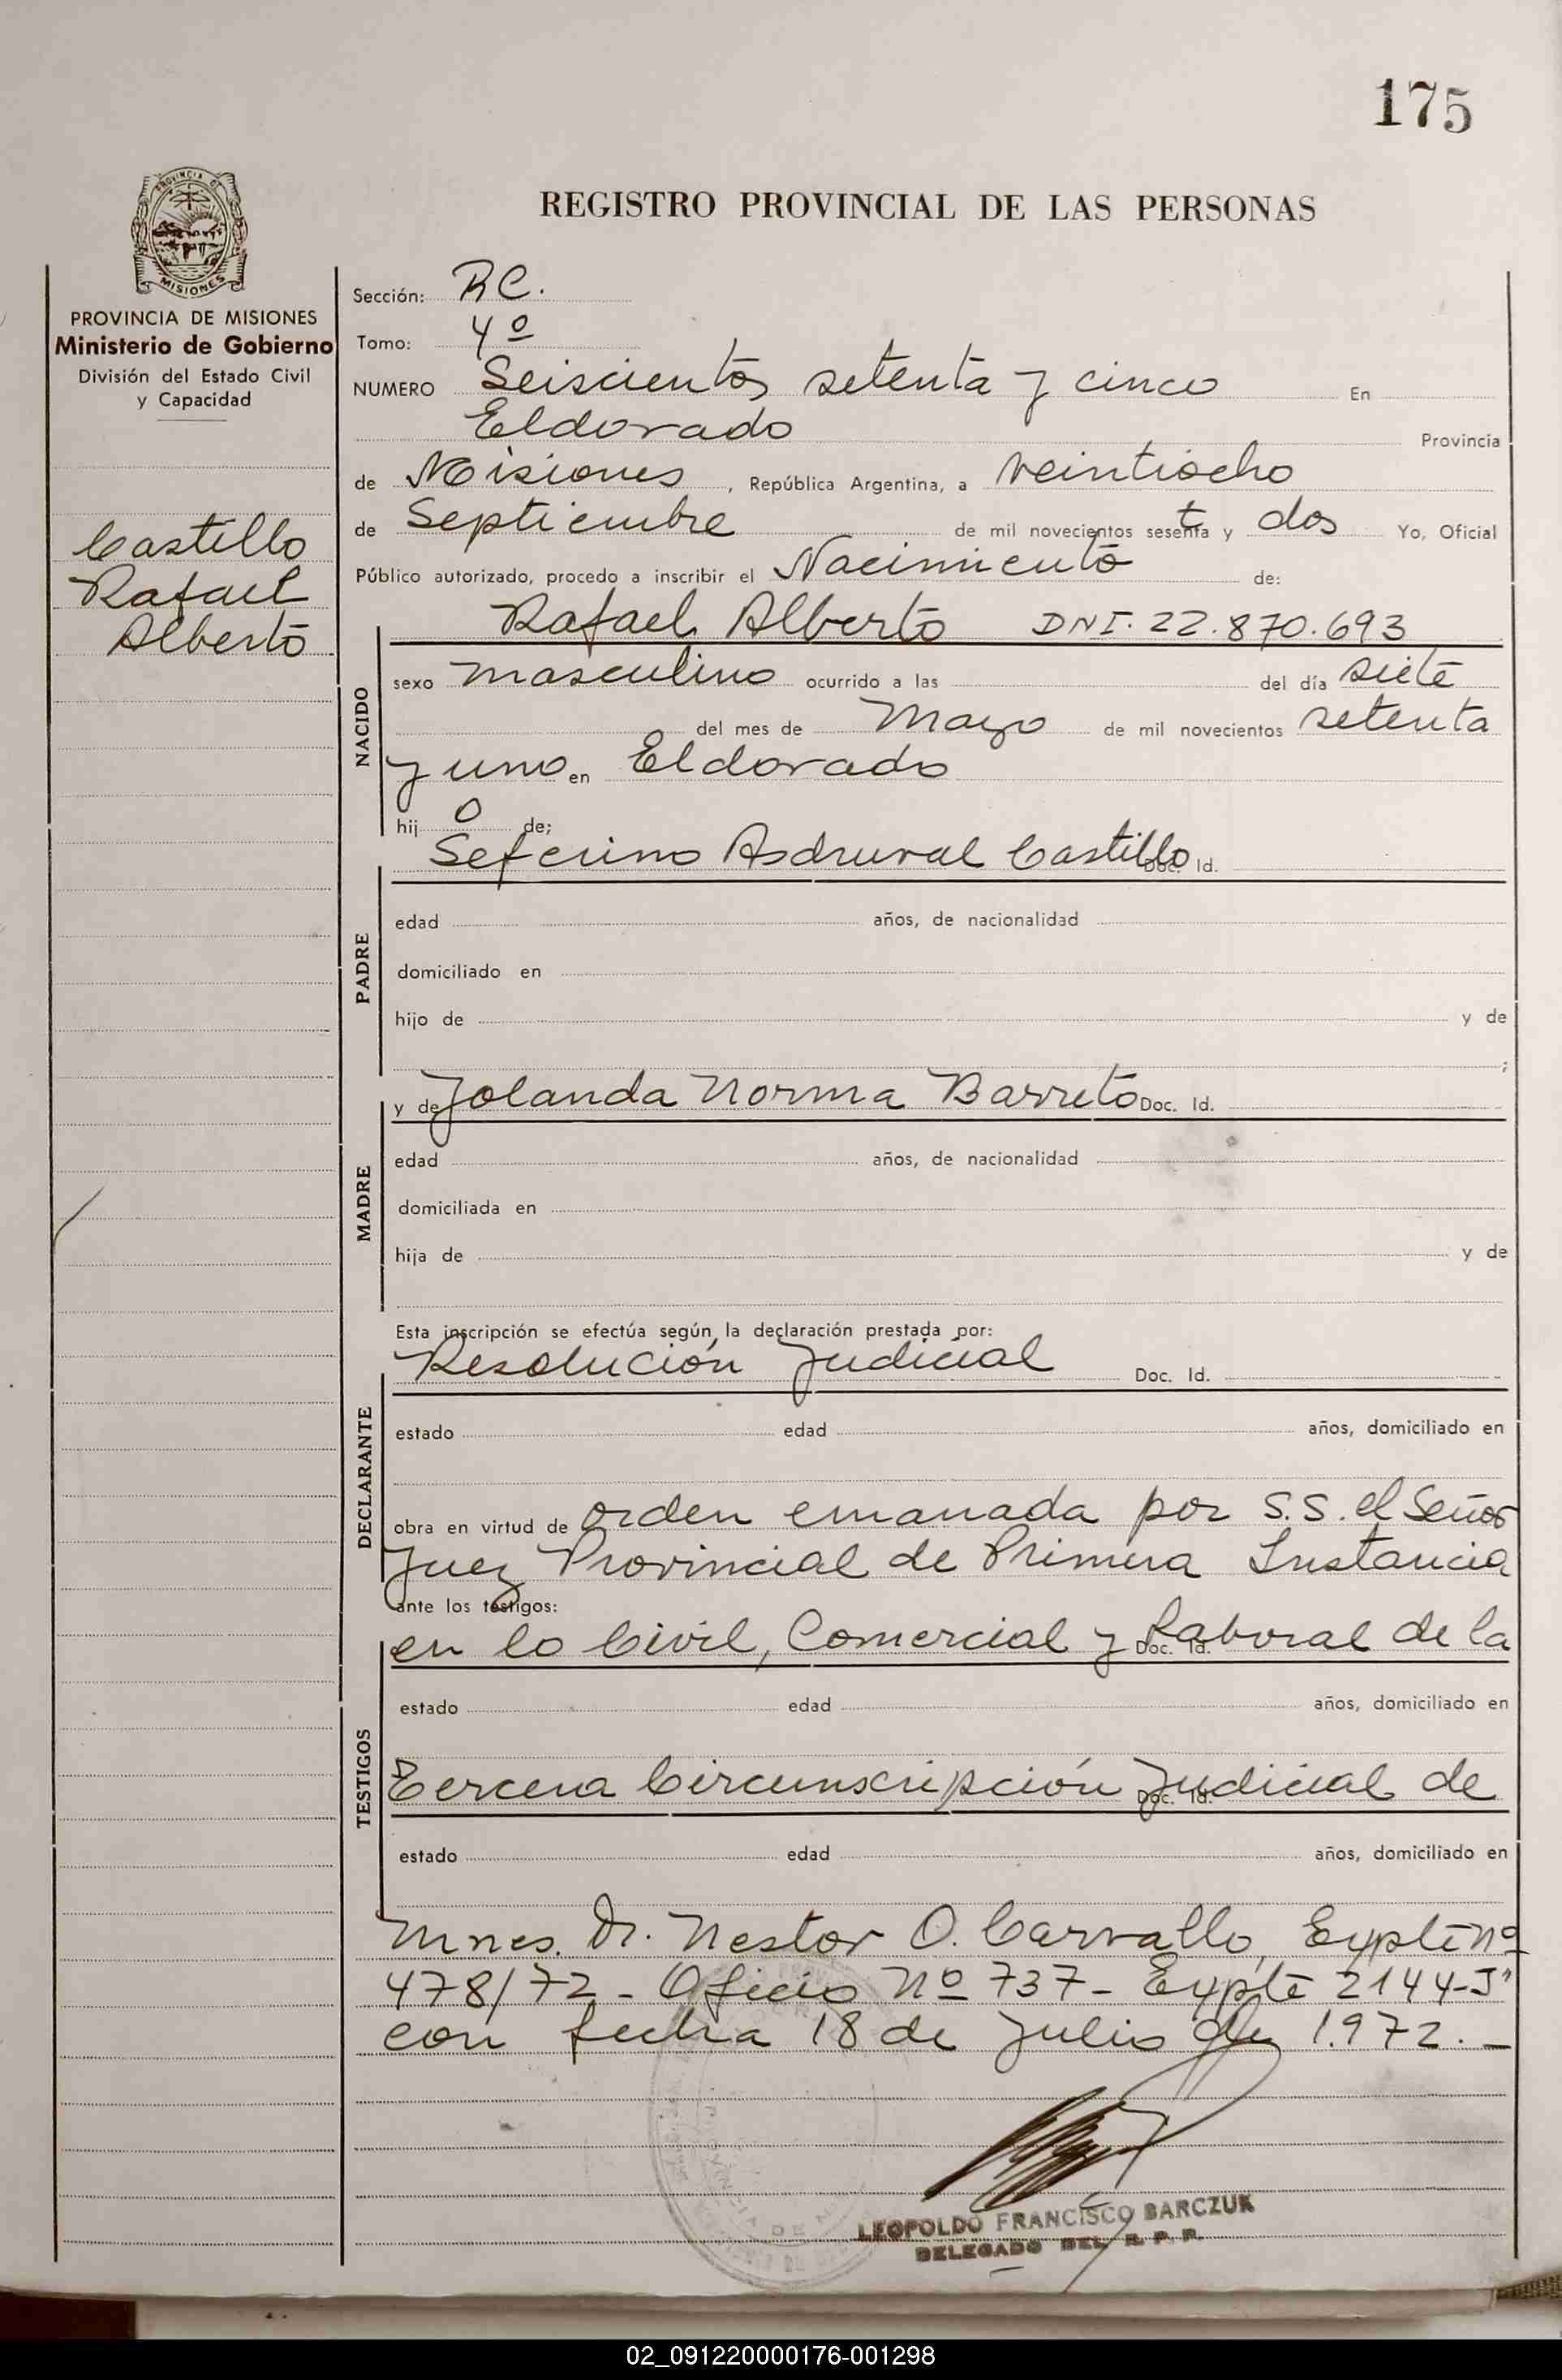 175
PROVINCIA DE
MISIONES
REGISTRO PROVINCIAL DE LAS PERSONAS
PROVINCIA DE MISIONES
Ministerio de Gobierno
División del Estado Civil
y Capacidad
Castillo
Rafael
Alberto
Sección: RC.
Tomo: 4º
NUMERO Seiscientos setenta y cinco En
Eldorado Provincia
de Misiones, República Argentina, a veintiocho
de Septiembre de mil novecientos setenta y dos Yo, Oficial
Público autorizado, procedo a inscribir el Nacimiento de:
Rafael Alberto DNI. 22.870.693
NACIDO
sexo masculino ocurrido a las del día siete
del mes de Mayo de mil novecientos setenta
y uno en Eldorado
hij o de;
Seferino Asdruval Castillo Doc. Id.
PADRE
edad años, de nacionalidad
domiciliado en
hijo de y de
;
y de Yolanda Norma Barreto Doc. Id.
MADRE
edad años, de nacionalidad
domiciliada en
hija de y de
Esta inscripción se efectúa según la declaración prestada por:
Resolución Judicial Doc. Id.
DECLARANTE
estado edad años, domiciliado en
obra en virtud de orden emanada por S.S. el Señor
Juez Provincial de Primera Instancia
ante los testigos:
en lo Civil, Comercial y Laboral de la Doc. Id.
TESTIGOS
estado edad años, domiciliado en
Tercera Circunscripción Judicial de Doc. Id.
estado edad años, domiciliado en
Mnes. Dr. Nestor O. Carvallo, Expte nº
478/72 - Oficio Nº 737 - Expte 2144-J"
con fecha 18 de Julio de 1.972. -
LEOPOLDO FRANCISCO BARCZUK
DELEGADO DEL R. P. P.
02_091220000176-001298